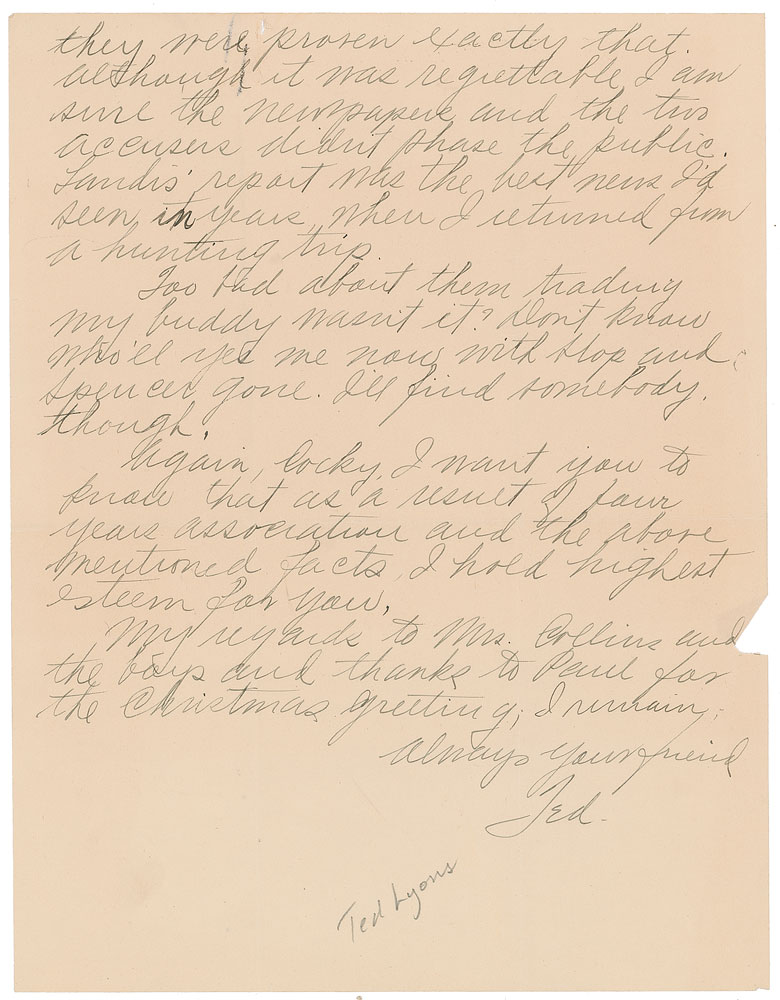 they were proven exactly that.
although it was regrettable I am
sure the newspapers and the two
accusers didn't phase the public.
Landis' report was the best news I'd
seen in years when I returned from
a hunting trip.
Too bad about them trading
my buddy wasn't it? Don't know
who'll yes me now with Hop and
Spencer gone. I'll find somebody,
though.
Again, Cocky, I want you to
know that as a result of four
years association and the above
mentioned facts, I hold highest
esteem for you.
My regards to Mrs. Collins and
the boys and thanks to Paul for
the Christmas greeting; I remain,
Always your friend
Ted.
Ted Lyons